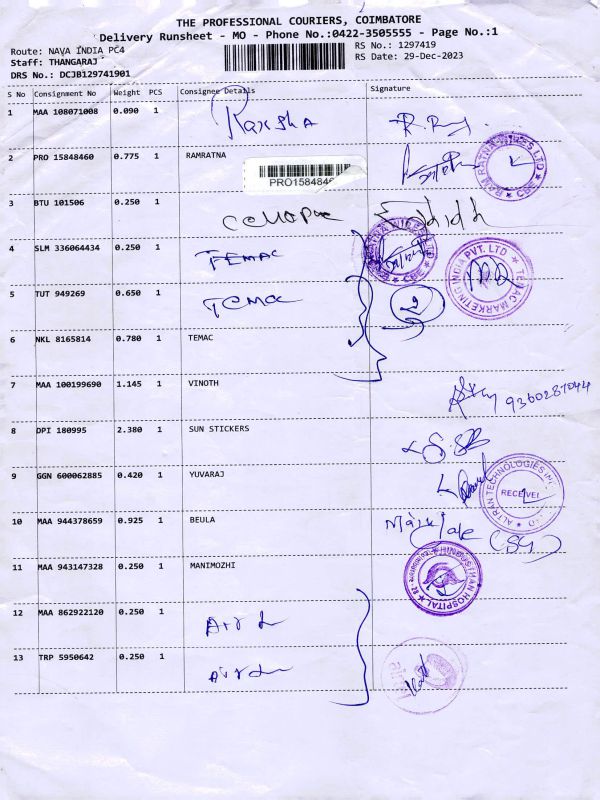 THE PROFESSIONAL COURIERS, COIMBATORE
Delivery Runsheet - MO - Phone No.:0422-3505555 - Page No.:1
Route: NAVA INDIA PC4
RS No.: 1297419
Staff: THANGARAJ
RS Date: 29-Dec-2023
DRS No.: DCJB129741901
S No Consignment No Weight PCS Consignee Details Signature
1 MAA 108071008 0.090 1 Raksha
2 PRO 15848460 0.775 1 RAMRATNA
RAM RATNA WIRES LTD ★ CBE ★
PRO1584846
3 BTU 101506 0.250 1
4 SLM 336064434 0.250 1 TEMAC
RAM RATNA WIRES LTD ★ CBE ★
TEMAC MARKETING INDIA PVT. LTD ★
5 TUT 949269 0.650 1 TEMAC
6 NKL 8165814 0.780 1 TEMAC
7 MAA 100199690 1.145 1 VINOTH
9360287044
8 DPI 180995 2.380 1 SUN STICKERS
9 GGN 600062885 0.420 1 YUVARAJ
ALTRAN TECHNOLOGIES
RECEIVED
10 MAA 944378659 0.925 1 BEULA
11 MAA 943147328 0.250 1 MANIMOZHI
HINDUSTHAN HOSPITAL
12 MAA 862922120 0.250 1
13 TRP 5950642 0.250 1
airtel